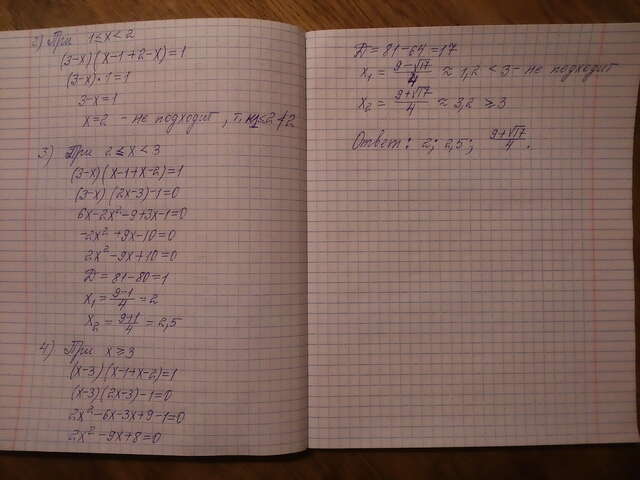 2) При 1≤x<2
(3-x)(x-1+2-x)=1
(3-x)·1=1
3-x=1
x=2 - не подходит, т.к.
3) При 2≤x<3
(3-x)(x-1+x-2)=1
(3-x)(2x-3)-1=0
6x-2x²-9+3x-1=0
-2x²+9x-10=0
2x²-9x+10=0
D=81-80=1
x₁=(9-1)/4=2
x₂=(9+1)/4=2,5
4) При x≥3
(x-3)(x-1+x-2)=1
(x-3)(2x-3)-1=0
2x²-6x-3x+9-1=0
2x²-9x+8=0
D=81-64=17
x₁=(9-√17)/4≈1,2<3-не подходит
x₂=(9+√17)/4≈3,2≥3
Ответ: 2; 2,5; (9+√17)/4.